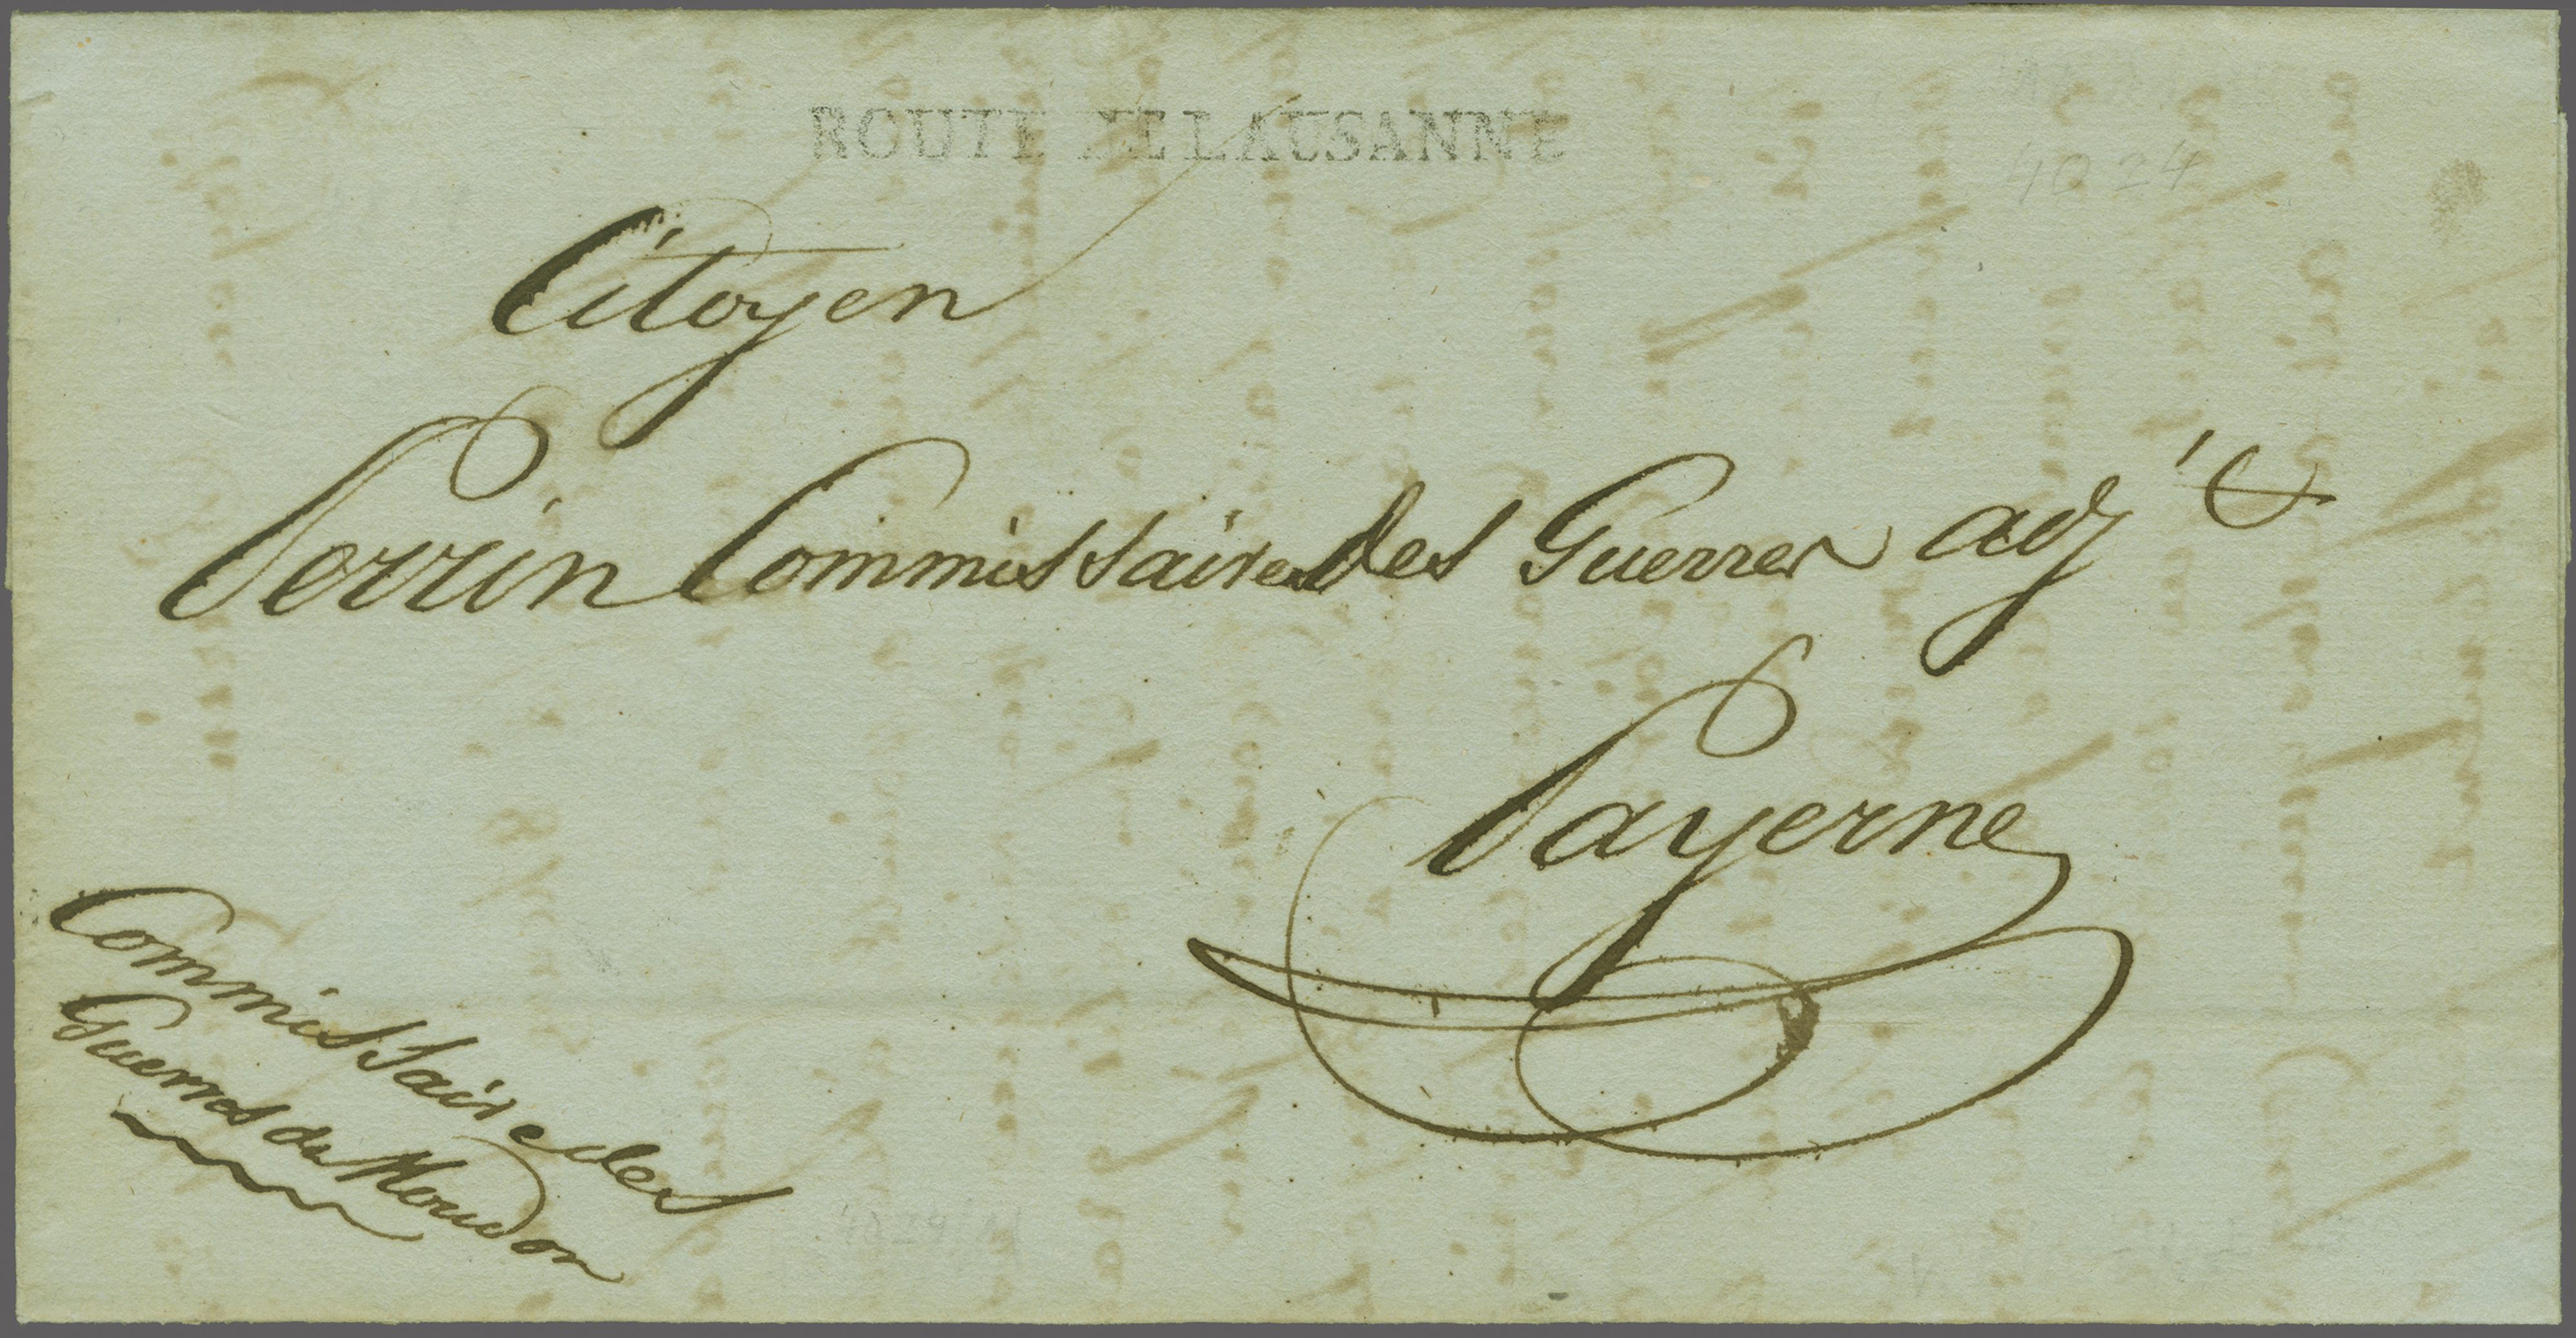 ROUTE DE LAUSANNE
4024
Citoyen
Perrin Commissaire des Guerres adj.t &
Payerne
Commissaire des
Guerres de Moudon